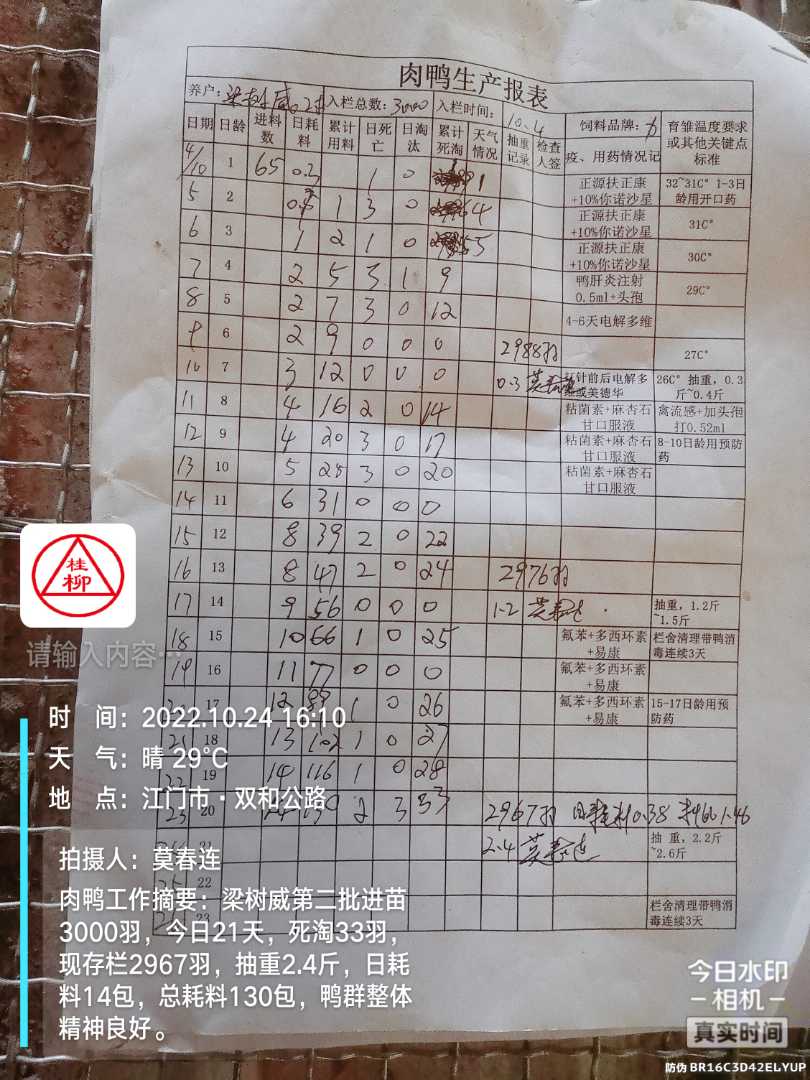 肉鸭生产报表
养户: 梁树威 入栏总数: 3000 入栏时间: 10.4 饲料品牌: 育雏温度要求或其他关键点标准
日期 日龄 进料数 日耗料 累计用料 日死亡 日淘汰 累计死淘 天气情况 抽重记录 检查人签 疫、用药情况记
4/10 1 65 1 0 1 正源扶正康+10%你诺沙星 32~31C° 1-3日龄用开口药
5 2 1 3 0 4 正源扶正康+10%你诺沙星 31C°
6 3 1 2 1 0 5 正源扶正康+10%你诺沙星 30C°
7 4 2 5 3 1 9 鸭肝炎注射0.5ml+头孢 29C°
8 5 2 7 3 0 12 4-6天电解多维
9 6 2 9 0 0 0 2988羽 27C°
10 7 3 12 0 0 0 0.3 打针前后电解多维或美德华 26C° 抽重，0.3斤~0.4斤
11 8 4 16 2 0 14 粘菌素+麻杏石甘口服液 禽流感+加头孢打0.52ml
12 9 4 20 3 0 17 粘菌素+麻杏石甘口服液 8-10日龄用预防药
13 10 5 25 3 0 20 粘菌素+麻杏石甘口服液
14 11 6 31 0 0 0
15 12 8 39 2 0 22
16 13 8 47 2 0 24 2976羽
17 14 9 56 0 0 0 1.2 莫春连 抽重，1.2斤~1.5斤
18 15 10 66 1 0 25 氟苯+多西环素+易康 栏舍清理带鸭消毒连续3天
19 16 11 77 0 0 0 氟苯+多西环素+易康
17 12 89 1 0 26 氟苯+多西环素+易康 15-17日龄用预防药
21 18 13 102 1 0 27
22 19 14 116 1 0 28
23 20 14 2 3 33 2967羽 0.38 1.46
21 2.4 莫春连 抽重，2.2斤~2.6斤
22
23 栏舍清理带鸭消毒连续3天
桂柳
请输入内容…
时 间：2022.10.24 16:10
天 气：晴 29°C
地 点：江门市·双和公路
拍摄人：莫春连
肉鸭工作摘要：梁树威第二批进苗
3000羽，今日21天，死淘33羽，
现存栏2967羽，抽重2.4斤，日耗
料14包，总耗料130包，鸭群整体
精神良好。
今日水印
相机
真实时间
防伪 BR16C3D42ELYUP